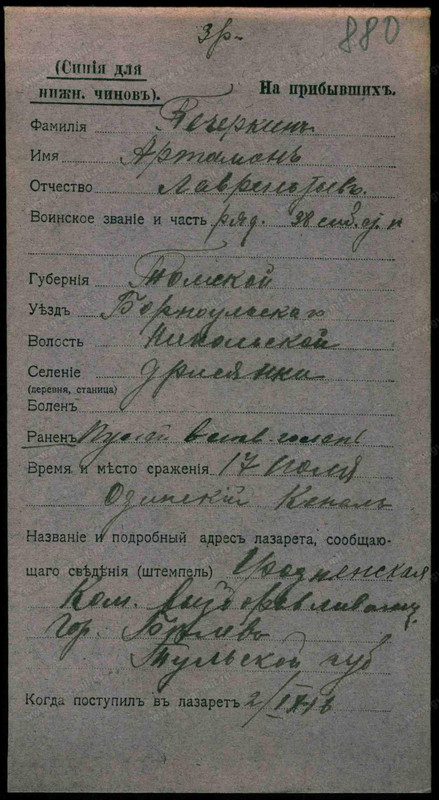 3р-
880
(Синія для
нижн. чиновъ).
На прибывшихъ.
Фамилія Печеркинъ
Имя Артамонъ
Отчество Лаврентьевъ
Воинское званіе и часть ряд. 28 сиб. стр. п
Губернія Томской
Уѣздъ Барнаульскаго
Волость Никольской
Селеніе
(деревня, станица)
Боленъ
Раненъ голени
Время и мѣсто сраженія 17 іюля
Огинскій Каналъ
Названіе и подробный адресъ лазарета, сообщаю-
щаго свѣдѣнія (штемпель) Гродненская
Ком. Выздоравливающ.
гор. Бѣлевъ
Тульской губ
Когда поступилъ въ лазаретъ 2/IX 16